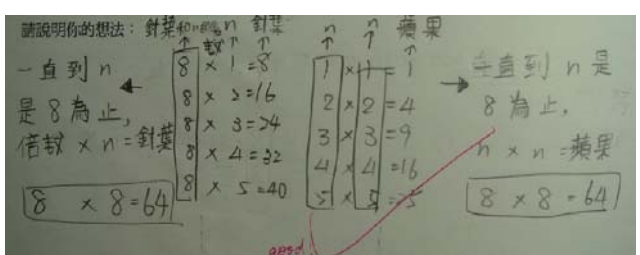 請說明你的想法：針葉
倍數 n 針葉 n n 蘋果
一直到 n
是 8 為止，
倍數 × n = 針葉
8 × 8 = 64
8 × 1 = 8
8 × 2 = 16
8 × 3 = 24
8 × 4 = 32
8 × 5 = 40
1 × 1 = 1
2 × 2 = 4
3 × 3 = 9
4 × 4 = 16
5 × 5 = 25
一直到 n 是
8 為止，
n × n = 蘋果
8 × 8 = 64
good